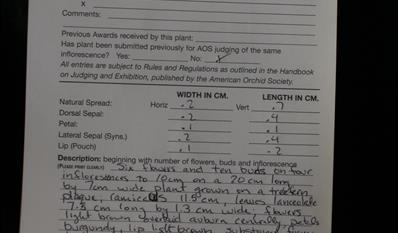 x
Comments:
Previous Awards received by this plant:
Has plant been submitted previously for AOS judging of the same
inflorescence? Yes: No: ✓
All entries are subject to Rules and Regulations as outlined in the Handbook
on Judging and Exhibition, published by the American Orchid Society.
WIDTH IN CM. LENGTH IN CM.
Natural Spread: Horiz .2 Vert .7
Dorsal Sepal: .2 .4
Petal: .1 .1
Lateral Sepal (Syns.) .2 .4
Lip (Pouch) .1 .2
Description: beginning with number of flowers, buds and inflorescence
(PLEASE PRINT CLEARLY) Six flowers and ten buds on four
inflorescences to 10cm on a 20 cm long
by 7cm wide plant grown on a treefern
plaque, ramicauls 11.5 cm, leaves lanceolate
7.5 cm long by 1.3 cm wide, flowers
light brown overlaid auburn centrally, petals
burgundy, lip light brown, substance